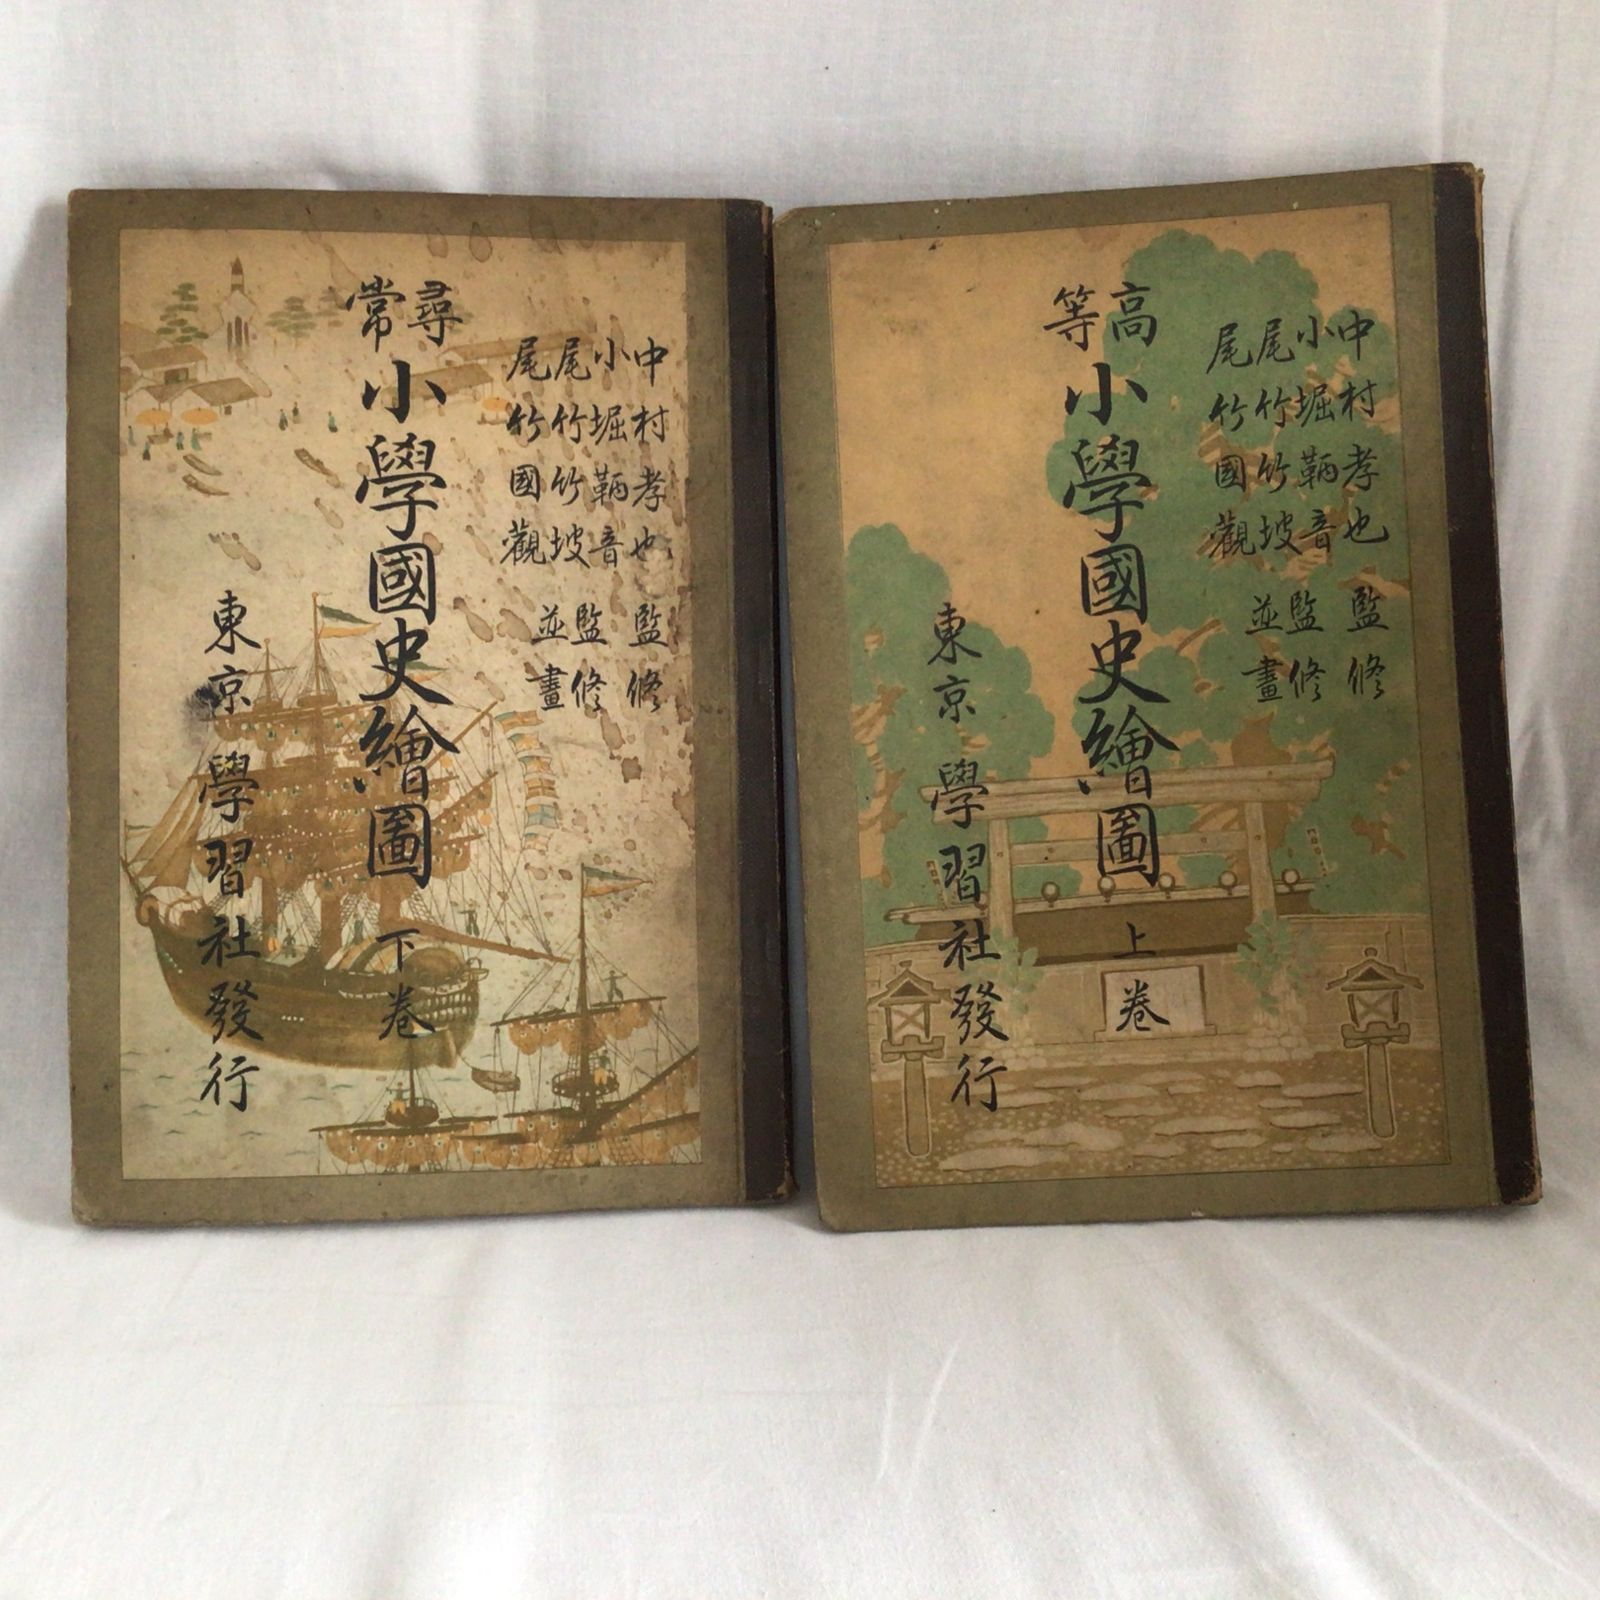 中村孝也 監修
小堀鞆音
尾竹竹坡
尾竹國觀
監修
並畫
高等
小學國史繪圖 上卷
東京 學習社發行
中村孝也 監修
小堀鞆音
尾竹竹坡
尾竹國觀
監修
並畫
尋常
小學國史繪圖 下卷
東京 學習社發行